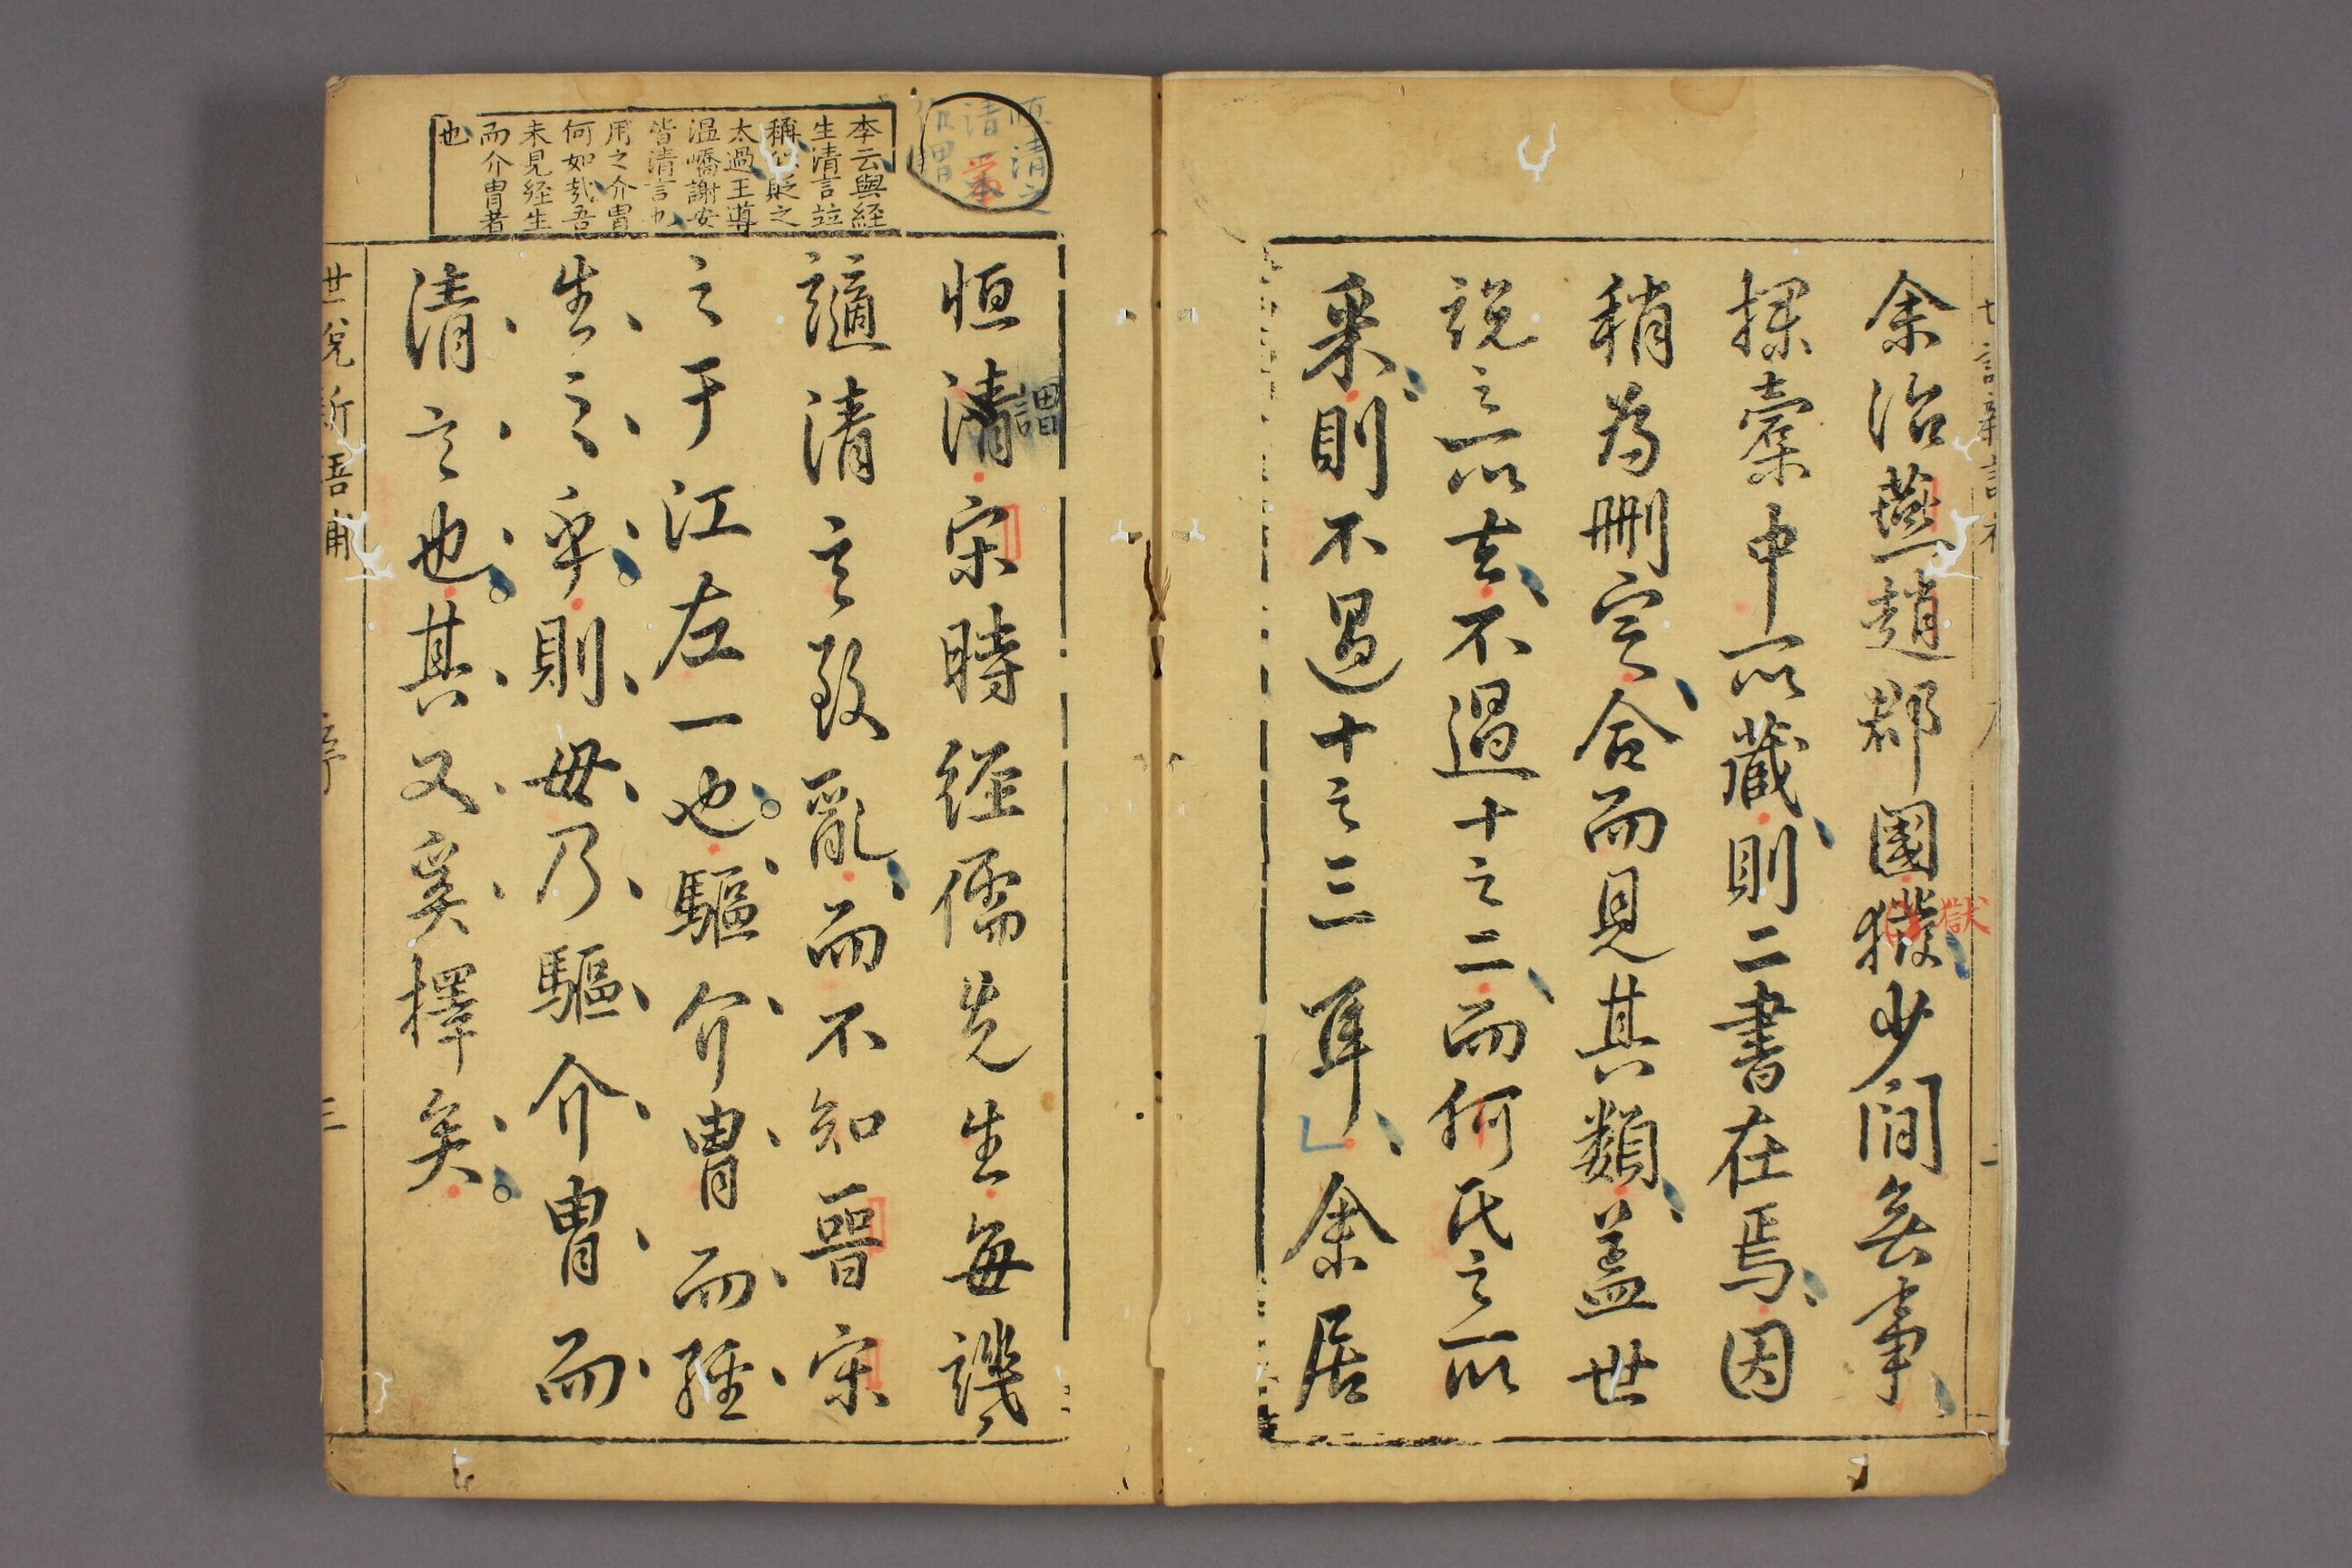 余治燕趙郡國獄少間無事
探橐中所藏則二書在焉因
稍為刪定合而見其類蓋世
說之所去不過十之二而何氏之所
采則不過十之三耳余居
恒清宋時經儒先生每譏
謂
謫清言致亂而不知晉宋
之于江左一也驅介冑而經
生之乎則毋乃驅介冑而
清言也其又奚擇矣
本云與経
生清言竝
稱似貶之
太過王導
温嶠謝安
皆清言也
用之介冑
何如哉吾
未見経生
而介冑者
也
獄
世說新語補
序
三
二